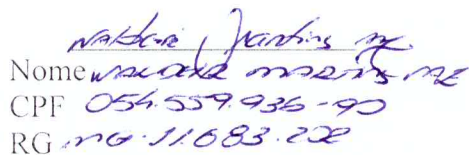 Martins ME
Nome WALDECIR MARTINS ME
CPF 054.559.936-90
RG MG.11.683.202